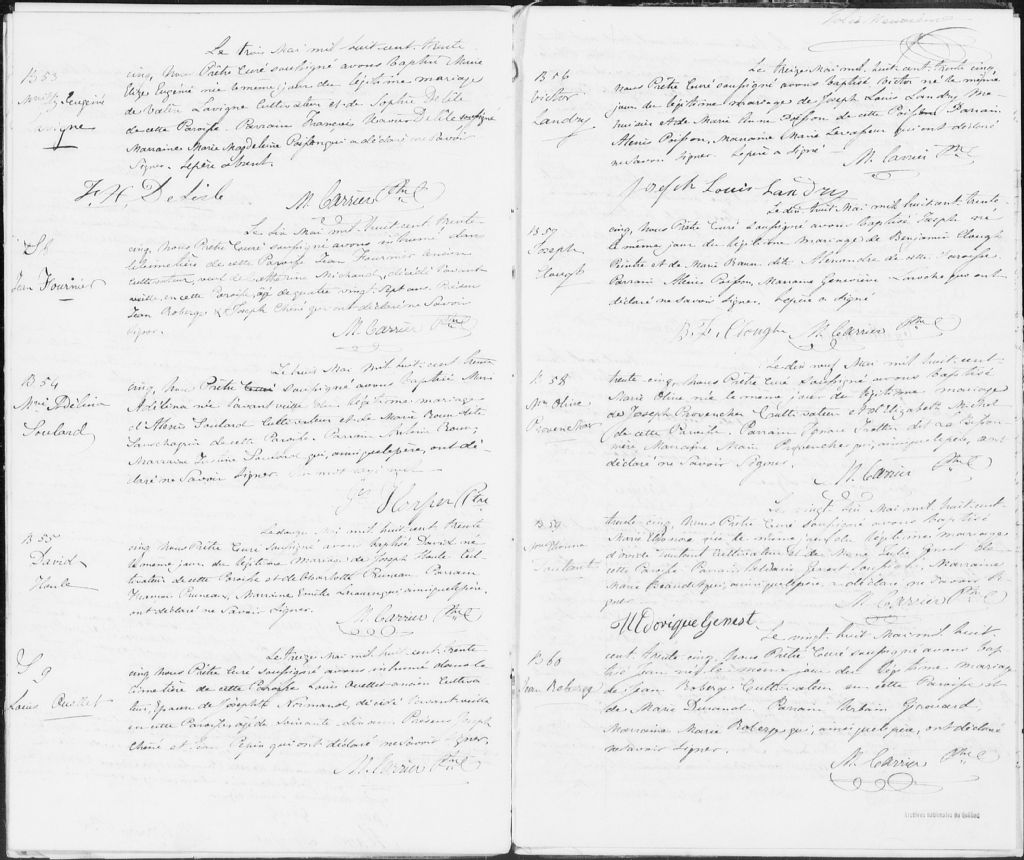 Le trois Mai mil-huit-cent-trente
B 53
cinq, Nous Prêtre Curé soussigné avons baptisé Marie
Elize Eugénie née le même jour du légitime mariage
Eugénie
Lavigne
de Lavigne Cultivateur et de Sophie De Lile
de cette Paroisse. Parrain François Xavier De Lile soussigné
Marraine Marie Magdeleine qui a déclaré ne savoir
signer. Le père absent.
F. X. De Lisle
M. Carrier Ptre
Le dix Mai mil huit cent trente-
S 8
cinq, Nous Prêtre Curé soussigné avons inhumé dans
le cimetière de cette Paroisse Jean Fournier ancien
Jean Fournier
cultivateur, veuf de Catherine Michaud, décédé l'avant
veille, en cette Paroisse, âgé de quatre vingt sept ans. Présens
Jean Roberge & Joseph Chéné qui ont déclaré ne savoir
signer.
M. Carrier Ptre
Le Mai mil huit-cent trente
B 54
cinq, Nous Prêtre Curé soussigné avons baptisé Marie
Adélina née l'avant veille du légitime mariage
Mrie Adélina
Soulard
d'Alexis Soulard Cultivateur et de Marie dit
Sanschagrin de cette Paroisse. Parrain
Marraine qui, ainsi que le père, ont dé-
claré ne savoir signer.
Harper Ptre
Mai mil huit-cent trente
B 55
cinq Nous Prêtre Curé soussigné avons baptisé David né
David
Houle
le même jour du légitime mariage de Joseph Houle Cul
tivateur de cette Paroisse et de Charlotte Pruneau. Parrain
Pruneau, Marraine Emilie qui ainsi que le père,
ont déclaré ne savoir signer.
M. Carrier Ptre
Le treize Mai mil huit-cent-trente-
S 9
cinq Nous Prêtre Curé soussigné avons inhumé dans le
cimetière de cette Paroisse Louis Ouellet ancien Cultiva
Louis Ouellet
teur, époux de Josephte Normand, décédé l'avant veille
en cette Paroisse, âgé de soixante dix ans. Présens Joseph
Chéné et Jean Pepin qui ont déclaré ne savoir signer.
M. Carrier Ptre
Le treize Mai mil huit-cent trente cinq,
B 56
Victor
Landry
Nous Prêtre Curé soussigné avons baptisé Victor né le même
jour du légitime mariage de Joseph Louis Landry Me-
nuisier et de Marie Anne Poisson de cette Paroisse. Parrain
Alexis Poisson, Marraine Marie Levasseur qui ont déclaré
ne savoir signer. Le père a signé
M. Carrier Ptre
Joseph Louis Landry
Le dix huit Mai mil huit cent trente
B 57
Joseph
Clough
cinq, Nous Prêtre Curé soussigné avons baptisé Joseph né
le même jour du légitime mariage de Benjamin Clough
Peintre et de Marie dite Alexandre de cette Paroisse.
Parrain Alexis Poisson, Marraine Geneviève qui ont
déclaré ne savoir signer. Le père a signé
B. F. Clough M. Carrier Ptre
Le dix neuf Mai mil huit-cent-
B 58
Mrie Olive
Provencher
trente-cinq, Nous Prêtre Curé soussigné avons baptisé
Marie Olive née le même jour du légitime mariage
de Joseph Provencher Cultivateur et d'Elizabeth
de cette Paroisse. Parrain Ignace dit
Marraine Marie Provencher qui, ainsi que le père, ont
déclaré ne savoir signer.
M. Carrier Ptre
Le vingt Mai mil huit cent
B 59
trente-cinq, Nous Prêtre Curé soussigné avons baptisé
Marie née le même jour du légitime mariage
Cultivateur et de Marie Julie Genest de
cette Paroisse. Parrain Genest soussigné, Marraine
Marie Beaudet qui, ainsi que le père, a déclaré ne savoir si
gner
M. Carrier Ptre
Medorique Genest.
Le vingt huit Mai mil huit
B 60
Jean Roberge
cent trente-cinq, Nous Prêtre Curé soussigné avons bap-
tisé Jean né le même jour du légitime mariage
de Jean Roberge Cultivateur en cette Paroisse et
de Marie Durand. Parrain Urbain Girouard
Marraine Marie Roberge qui, ainsi que le père, ont déclaré
ne savoir signer.
M. Carrier Ptre
Archives nationales du Québec